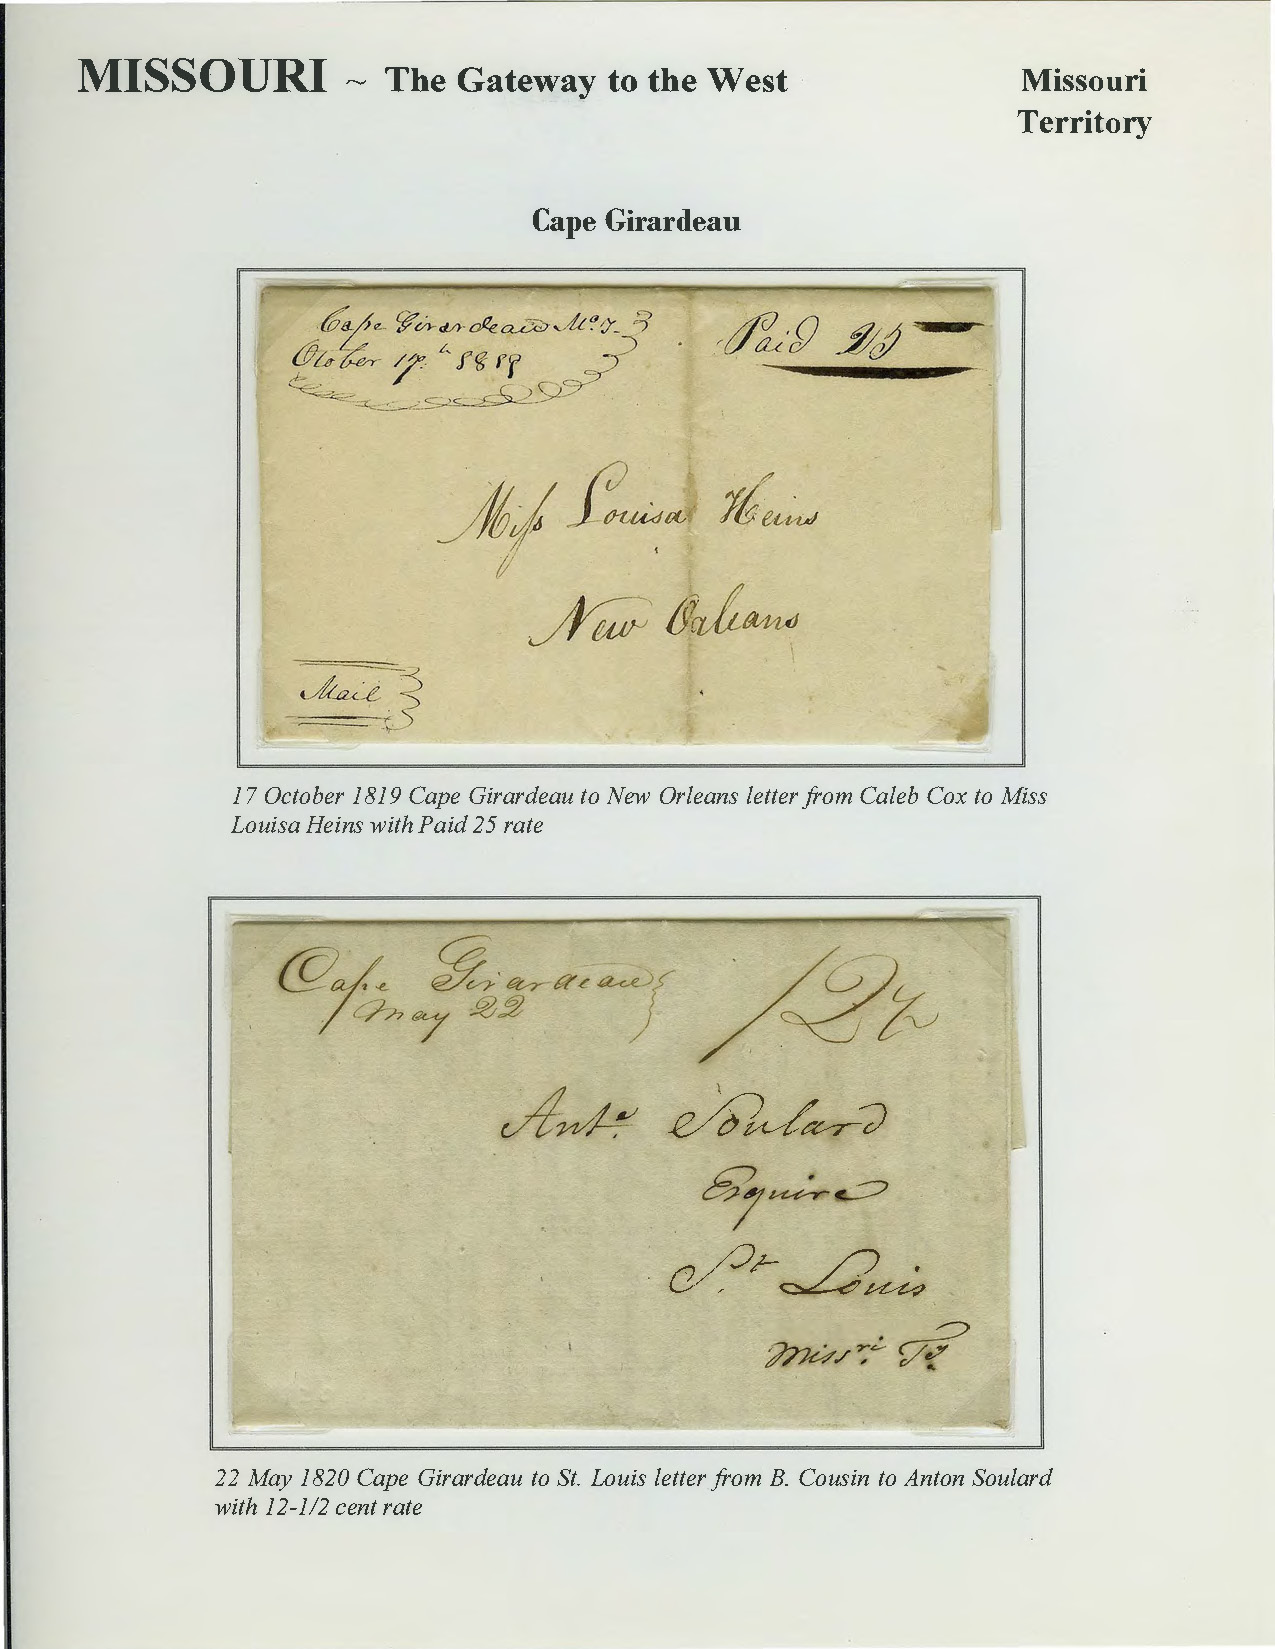 MISSOURI ~ The Gateway to the West
Missouri
Territory
Cape Girardeau
Cape Girardeau Mo. T.
Otober 17th 1819
Paid 25
Miss Louisa Heins
New Orleans
Mail
17 October 1819 Cape Girardeau to New Orleans letter from Caleb Cox to Miss
Louisa Heins with Paid 25 rate
Cape Girardeau
May 22
12½
Ante. Soulard
Esquire
St. Louis
Missri. Ty.
22 May 1820 Cape Girardeau to St. Louis letter from B. Cousin to Anton Soulard
with 12-1/2 cent rate